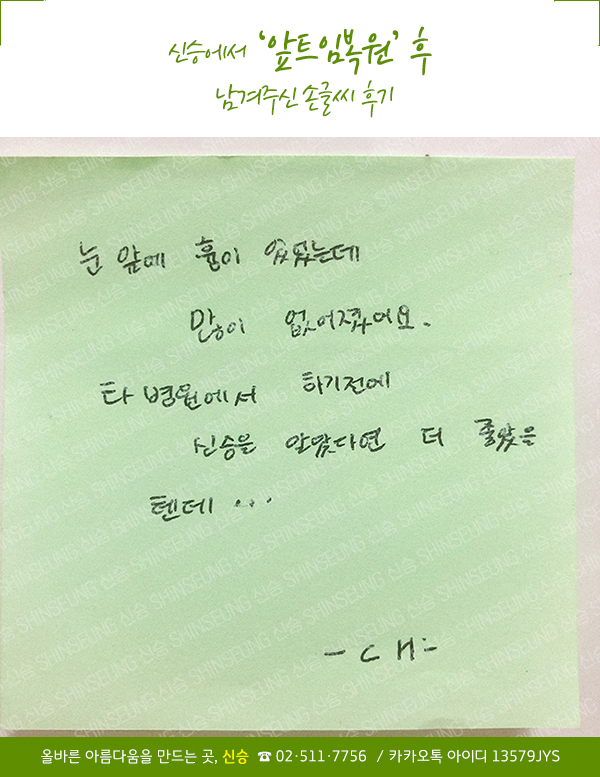 신승에서 '앞트임복원' 후
남겨주신 손글씨 후기
눈 앞에 흉이 있었는데
많이 없어졌어요.
타 병원에서 하기전에
신승을 알았다면 더 좋았을
텐데 ...
- C H -
올바른 아름다움을 만드는 곳, 신승 ☎ 02·511·7756 / 카카오톡 아이디 13579JYS